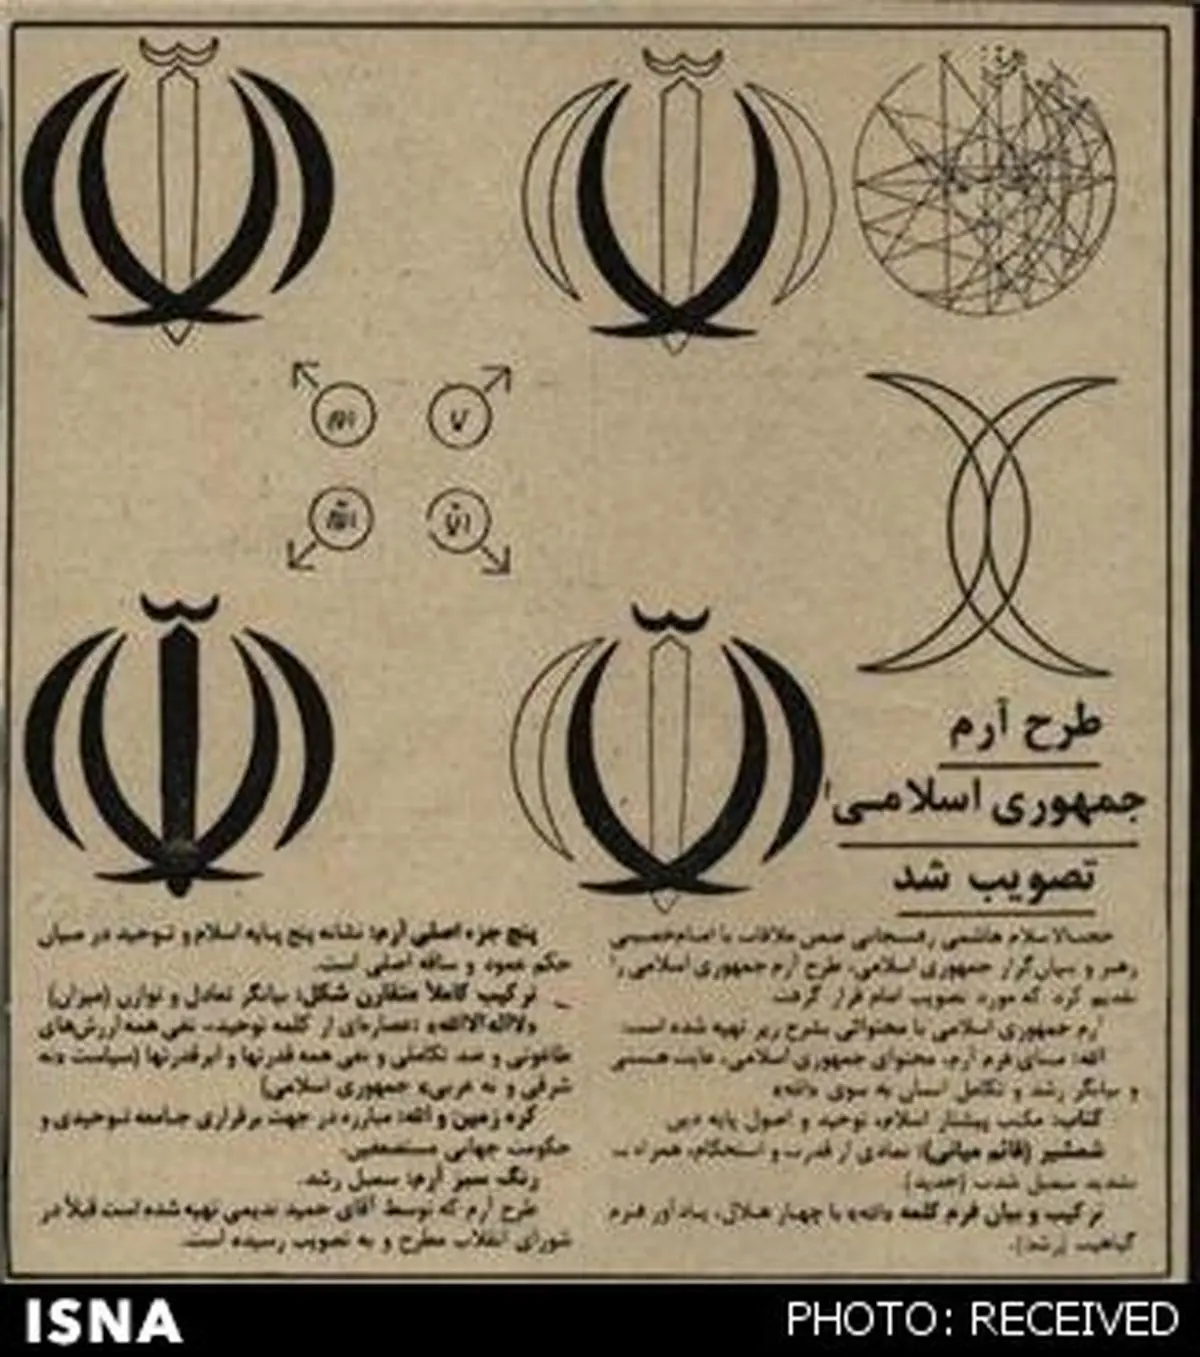 لا
اله
الا
الله
طرح آرم
جمهوری اسلامی
تصویب شد
حجت‌الاسلام هاشمی رفسنجانی ضمن ملاقات با امام‌خمینی
رهبر و بنیان‌گزار جمهوری اسلامی، طرح آرم جمهوری اسلامی را
تقدیم کرد که مورد تصویب امام قرار گرفت
آرم جمهوری اسلامی با محتوائی بشرح زیر تهیه شده است:
الله: مبنای فرم آرم، محتوای جمهوری اسلامی، غایت هستی
و بیانگر رشد و تکامل انسان به سوی «الله»
کتاب: مکتب پیشتاز اسلام، توحید و اصول پایه دین
شمشیر (قائم میانی): نمادی از قدرت و استحکام، همراه با
تشدید سمبل شدت (حدید).
ترکیب و بیان فرم کلمه «الله» با چهار هلال، یادآور فرم
گیاهیت (رشد).
پنج جزء اصلی آرم: نشانه پنج پایه اسلام و توحید در میان
حکم عمود و ساقه اصلی است.
ترکیب کاملاً متقارن شکل: بیانگر تعادل و توازن (میزان)
«لااله‌الاالله» :عصاره‌ای از کلمه توحید، نفی همه ارزش‌های
طاغوتی و ضد تکاملی و نفی همه قدرتها و ابرقدرتها (سیاست «نه
شرقی و نه غربی» جمهوری اسلامی)
کره زمین و الله: مبارزه در جهت برقراری جامعه توحیدی و
حکومت جهانی مستضعفین.
رنگ سبز آرم: سمبل رشد.
طرح آرم که توسط آقای حمید ندیمی تهیه شده است قبلاً در
شورای انقلاب مطرح و به تصویب رسیده است.
ISNA
PHOTO: RECEIVED